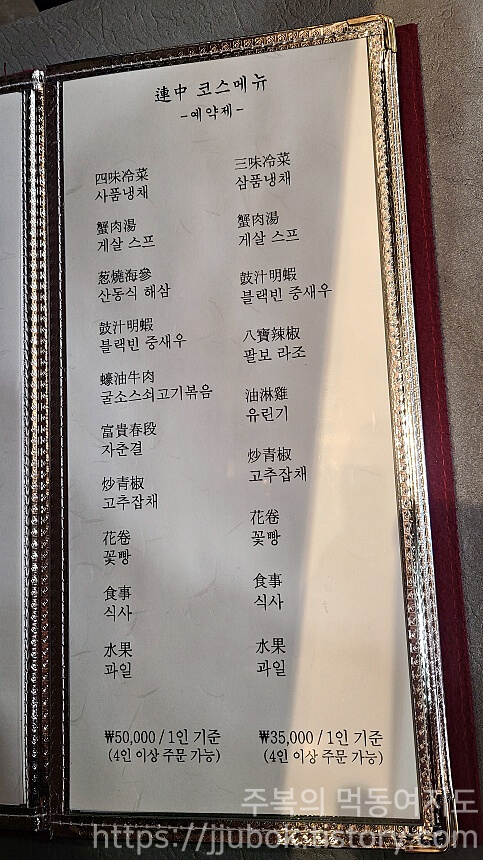 連中 코스메뉴
-예약제-
四味冷菜
사품냉채
蟹肉湯
게살 스프
葱燒海參
산동식 해삼
鼓汁明蝦
블랙빈 중새우
蠔油牛肉
굴소스쇠고기볶음
富貴春段
자춘결
炒青椒
고추잡채
花卷
꽃빵
食事
식사
水果
과일
₩50,000 / 1인 기준
(4인 이상 주문 가능)
三味冷菜
삼품냉채
蟹肉湯
게살 스프
鼓汁明蝦
블랙빈 중새우
八寶辣椒
팔보 라조
油淋雞
유린기
炒青椒
고추잡채
花卷
꽃빵
食事
식사
水果
과일
₩35,000 / 1인 기준
(4인 이상 주문 가능)
주복의 먹동여지도